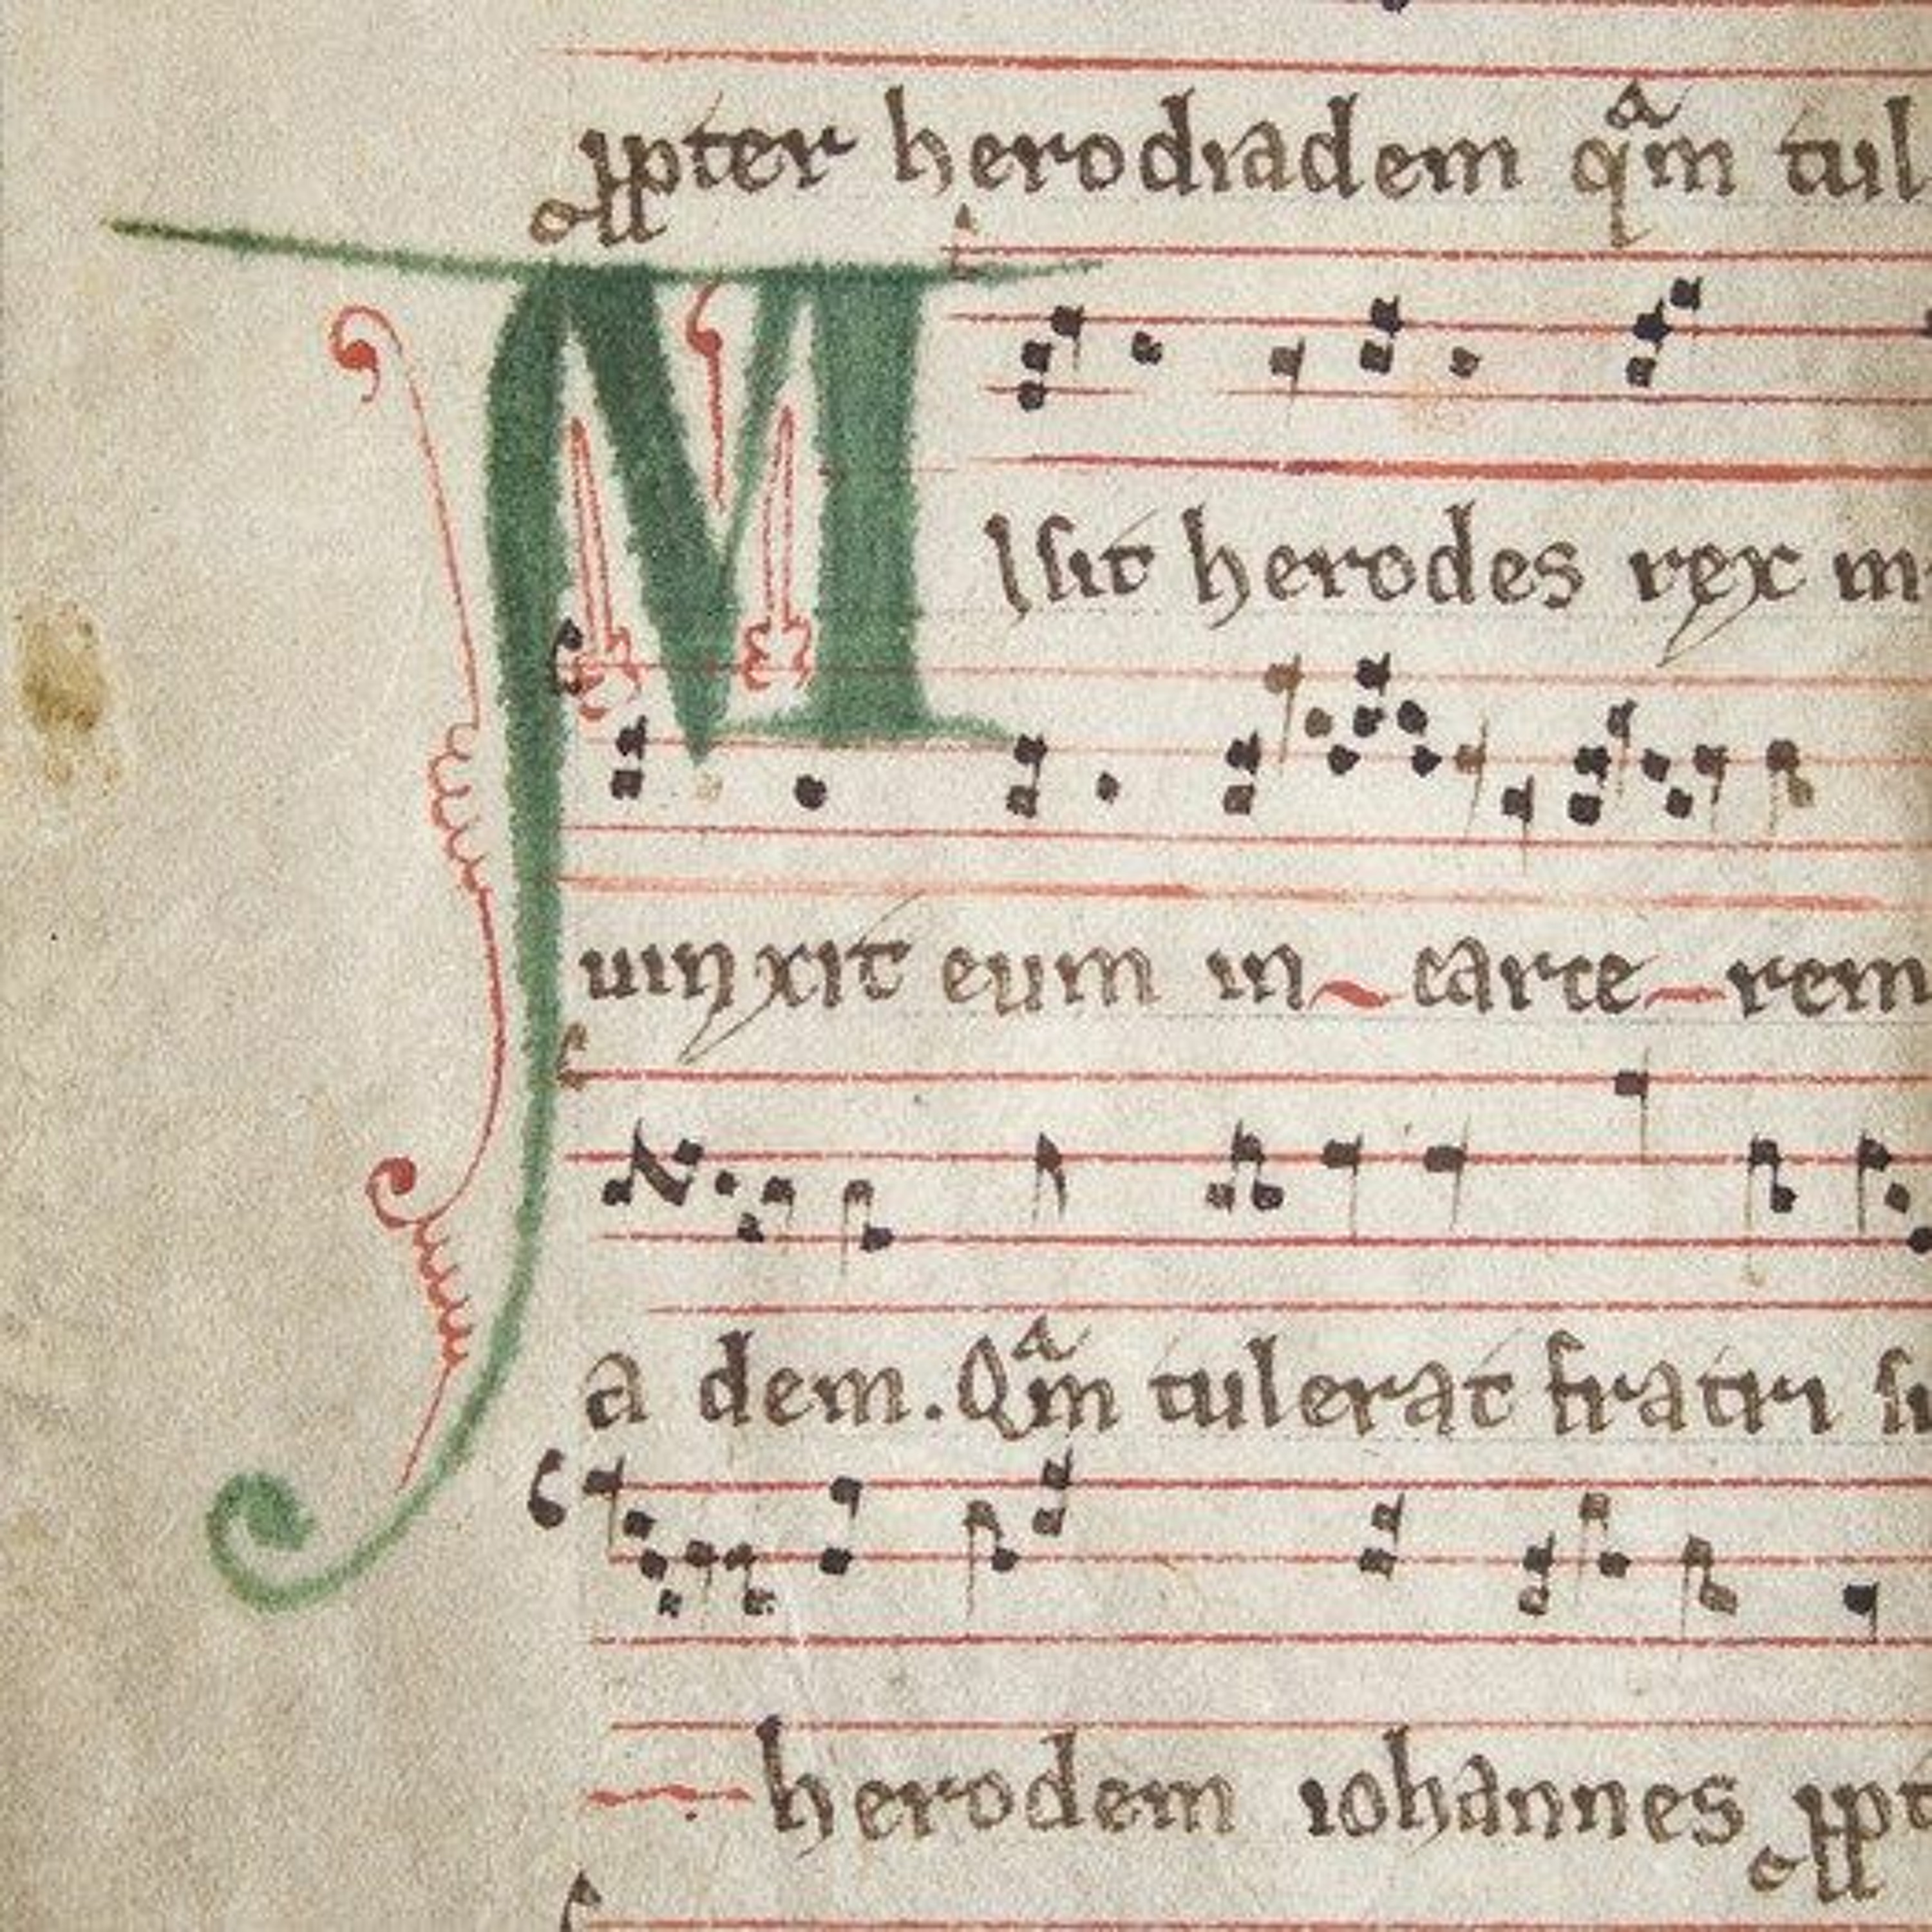 ꝓpter herodiadem qᵃm tul
MIſit herodes rex m
uinxit eum in carce rem
a dem. Qᵃm tulerat fratri ſu
herodem iohannes ꝓpt